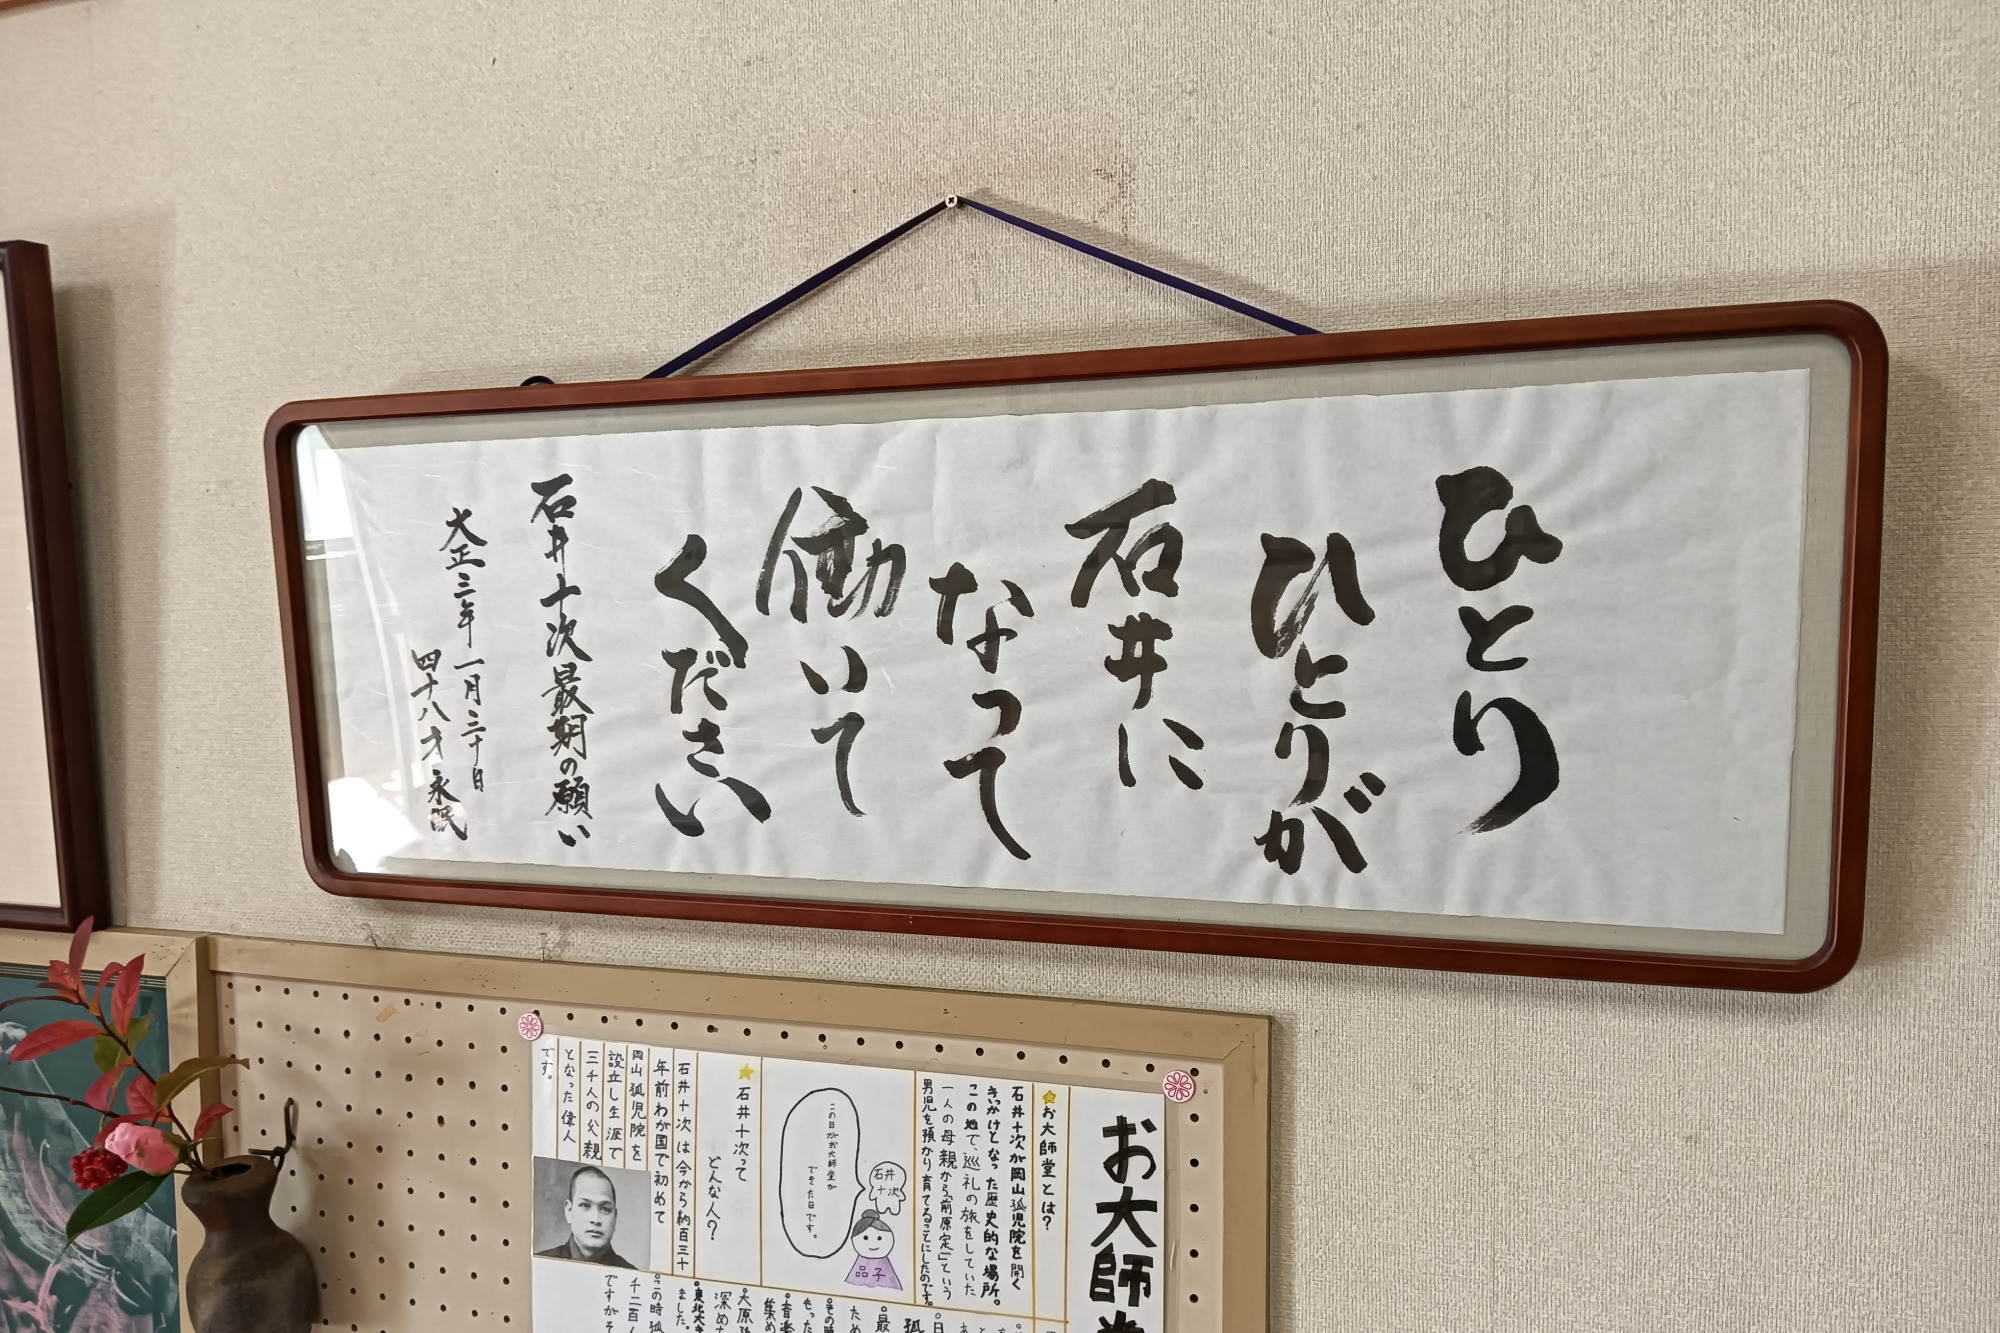 ひとり
ひとりが
石井に
なって
働いて
ください
石井十次最期の願い
大正三年一月三十日
四十八才永眠
お大師堂
お大師堂とは?
石井十次が岡山孤児院を開く
きっかけとなった歴史的な場所。
この地で、巡礼の旅をしていた
一人の母親から「前原定一」という
男児を預かり育てることにしたのです。
この日がお大師堂が
できた日です。
石井
十次
品子
石井十次って
どんな人?
石井十次は今から約百三十
年前わが国で初めて
岡山孤児院を
設立し生涯で
三千人の父親
となった偉人
です。